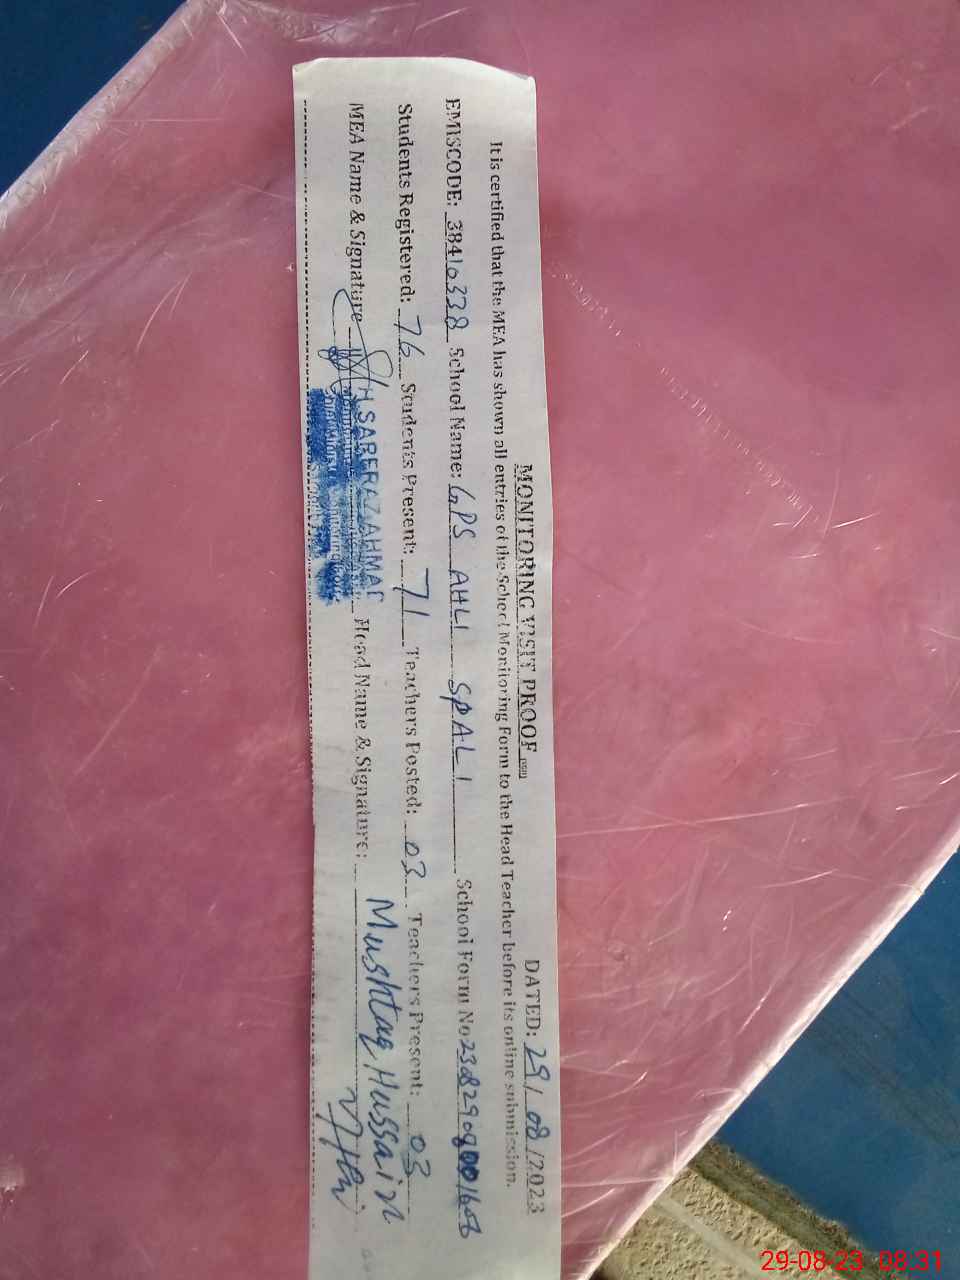 MONITORING VISIT PROOF
DATED: 29/08/2023
It is certified that the MEA has shown all entries of the School Monitoring Form to the Head Teacher before its online submission.
EMISCODE: 38410338 School Name: GPS AHLI SPALI School Form No
Students Registered: 76 Students Present: 71 Teachers Posted: 03 Teachers Present: 03
MEA Name & Signature Head Name & Signature: Mushtaq Hussain
29-08-23 08:31